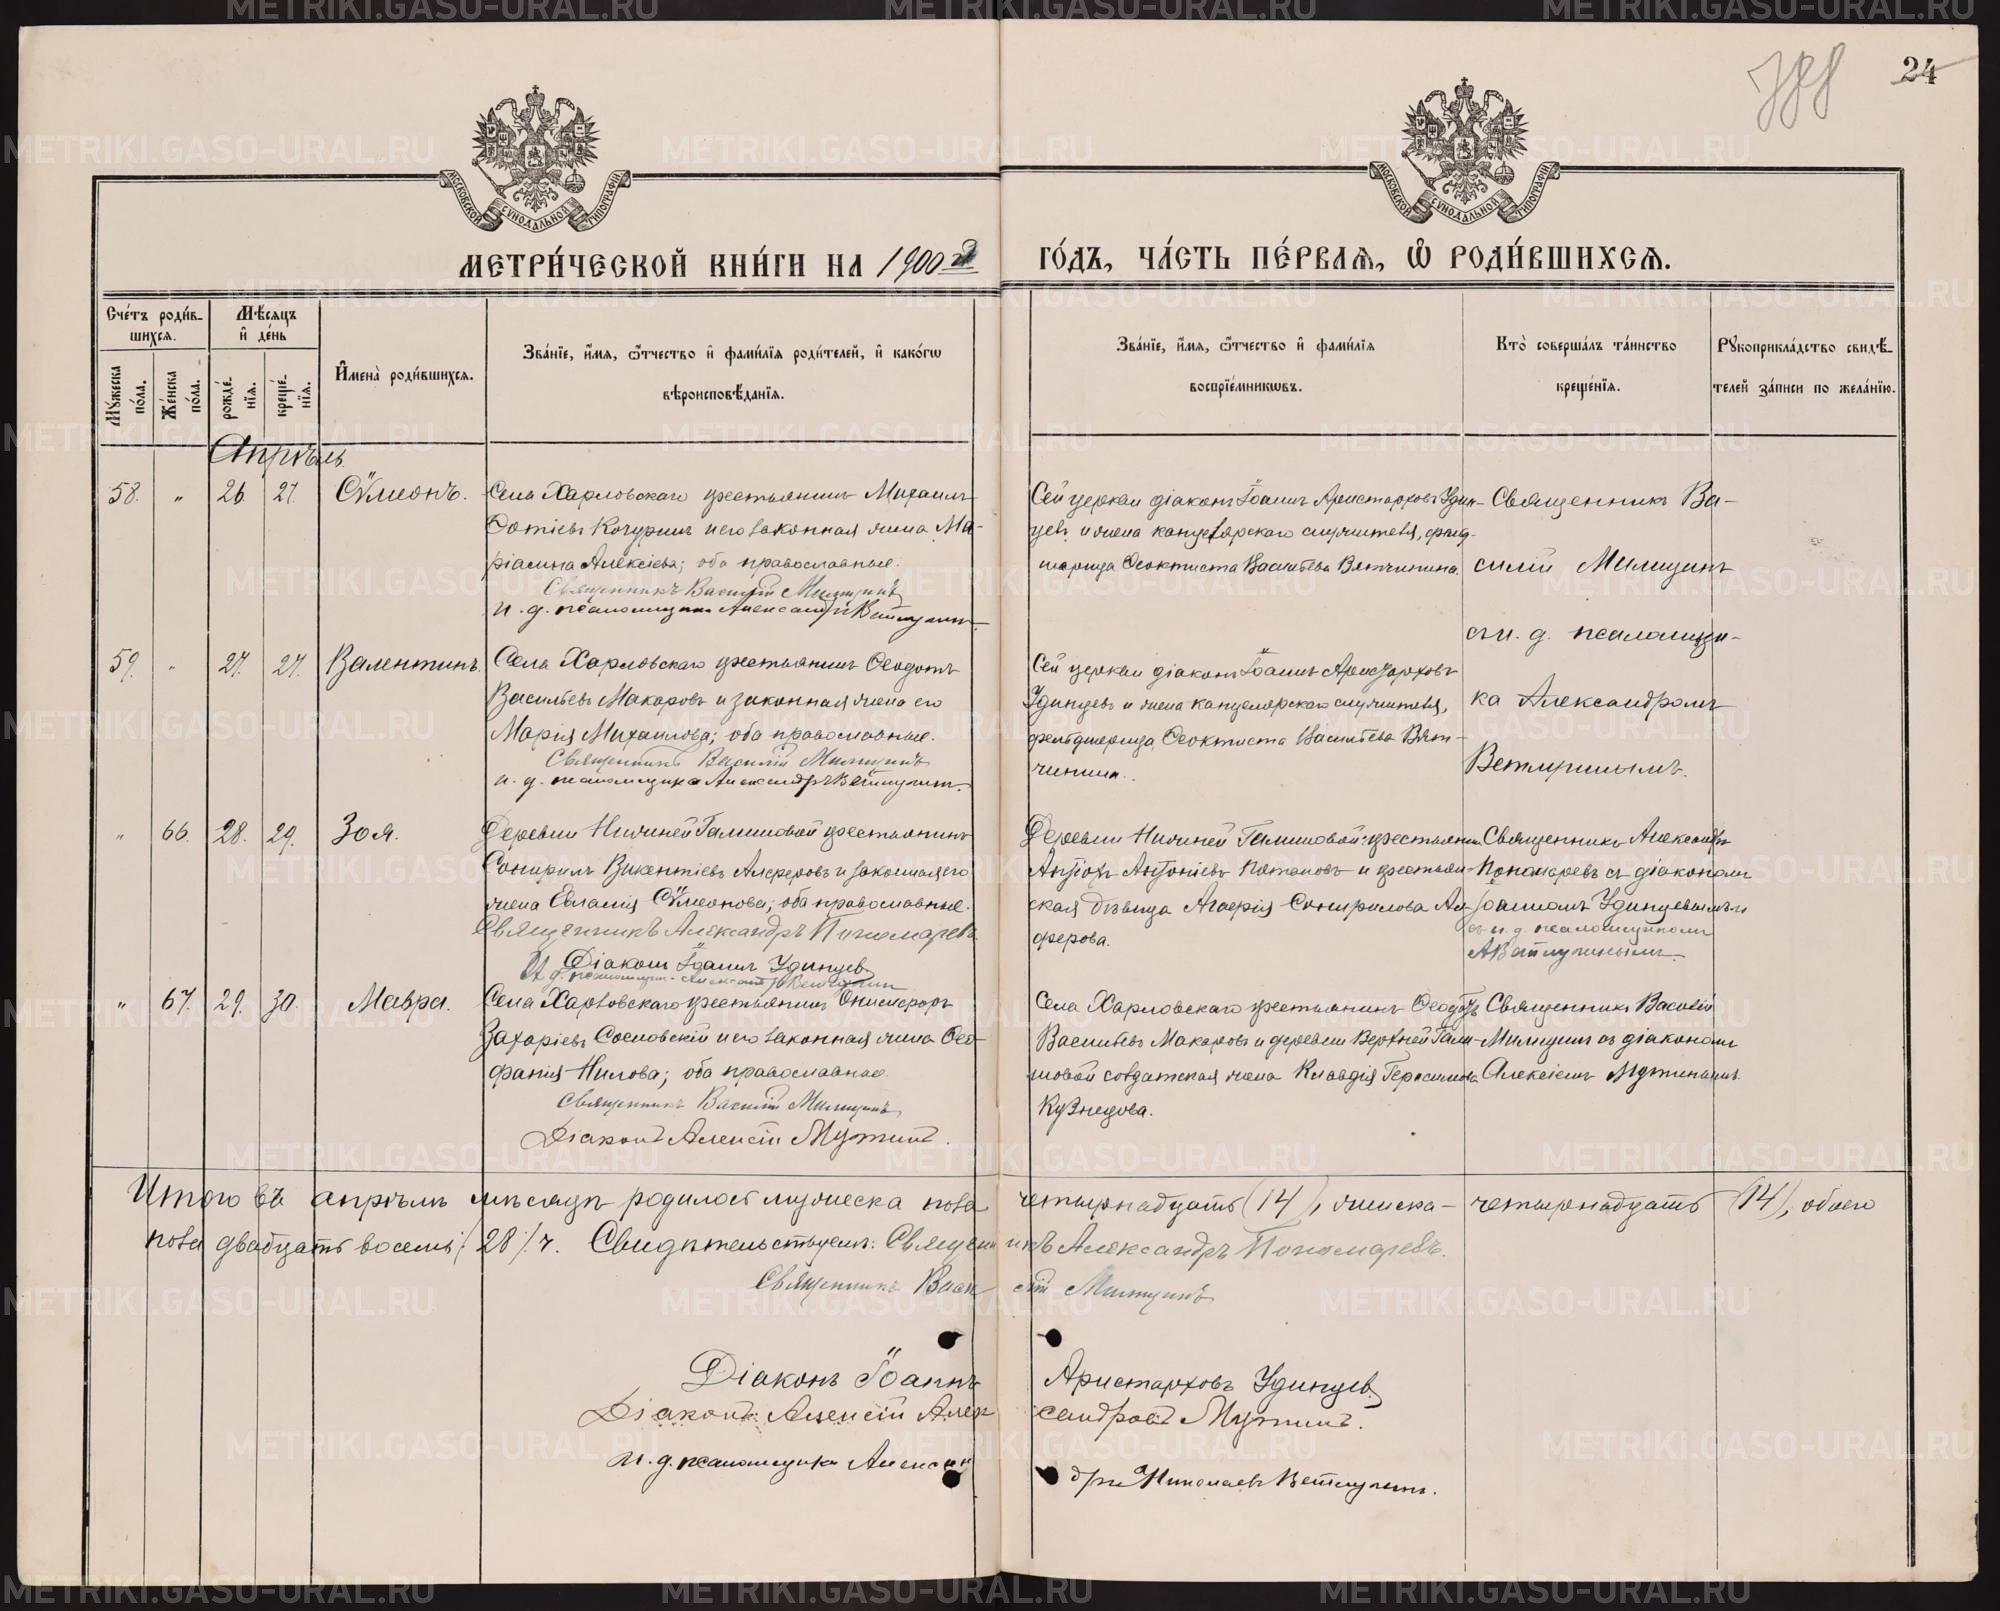 788
24
МОСКОВСКОЙ СѴНОДАЛЬНОЙ ТИПОГРАФІИ
МОСКОВСКОЙ СѴНОДАЛЬНОЙ ТИПОГРАФІИ
МЕТРИ́ЧЕСКОЙ КНИ́ГИ НА 1900й ГО́ДЪ, ЧА́СТЬ ПЕ́РВАѦ, Ѡ РОДИ́ВШИХСѦ.
Сче́тъ роди́в-
шихсѧ.
Мꙋ́жеска по́ла.
Же́нска по́ла.
Мѣ́сѧцъ
и҆ де́нь
рожде́нїѧ.
креще́нїѧ.
И҆мена̀ роди́вшихсѧ.
Зва́нїе, и҆́мѧ, ѻ҆́тчество и҆ фами́лїѧ роди́телей, и҆ како́гѡ
вѣроисповѣ́данїѧ.
Зва́нїе, и҆́мѧ, ѻ҆́тчество и҆ фами́лїѧ
воспрїе́мникѡвъ.
Кто̀ соверша́лъ та́инство
креще́нїѧ.
Рꙋкоприкла́дство свидѣ́-
телей за́писи по жела́нїю.
Апрѣль
58. " 26 27. Сѵмеонъ.
Села Харловскаго крестьянинъ Михаилъ
Фотіевъ Кочуринъ и его законная жена Ма-
ріамна Алексіева; оба православные.
Священникъ Василій Милицинъ
и. д. псаломщика Александръ Ветлугинъ.
Сей церкви діаконъ Іоаннъ Аристарховъ Удин-
цевъ и жена канцелярскаго служителя, фельд-
шерица Ѳеоктиста Васильева Вятчинина.
Священникъ Ва-
силій Милицинъ
съ и. д. псаломщи-
ка Александромъ
Ветлугинымъ.
59. " 27. 27. Валентинъ.
Села Харловскаго крестьянинъ Ѳеодотъ
Васильевъ Макаровъ и законная жена его
Марія Михаилова; оба православные.
Священникъ Василій Милицинъ
и. д. псаломщика Александръ Ветлугинъ.
Сей церкви діаконъ Іоаннъ Аристарховъ
Удинцевъ и жена канцелярскаго служителя,
фельдшерица Ѳеоктиста Васильева Вят-
чинина.
" 66. 28. 29. Зоя.
Деревни Нижней Галишовой крестьянинъ
Спиридъ Викентіевъ Алферовъ и законная его
жена Евлампія Сѵмеонова; оба православные.
Священникъ Александръ Пономаревъ.
Діаконъ Іоаннъ Удинцев
И. д. псаломщик. Александръ Ветлугин
Деревни Нижней Галишовой крестьянин
Антіохъ Антоніевъ Потаповъ и крестьян-
ская дѣвица Агаѳія Спирилова Ал-
ферова.
Священникъ Александръ
Пономаревъ съ діакономъ
Іоанномъ Удинцевымъ и
съ и. д. псаломщикомъ
А Ветлугинымъ.
" 67. 29. 30. Мавра.
Села Харловскаго крестьянинъ Онисифоръ
Захаріевъ Сосновскій и его законная жена Ѳео-
фанія Нилова; оба православные.
Священникъ Василій Милицинъ
Діаконъ Алексій Мутинъ.
Села Харловскаго крестьянинъ Ѳеодотъ
Васильевъ Макаровъ и деревни Верхней Гали-
шовой солдатская жена Клавдія Герасимова
Кузнецова.
Священникъ Василій
Милицинъ съ діакономъ
Алексіемъ Мутинымъ.
Итого въ апрѣлѣ мѣсяцѣ родилось мужеска пола четырнадцать (14), женска- четырнадцать (14), обоего
пола двадцать восемь (28) ч. Свидѣтельствуемъ: Священникъ Александръ Пономаревъ.
Священникъ Василій Милицинъ
Діаконъ Іоаннъ Аристарховъ Удинцев
Діаконъ Алексій Александровъ Мутинъ.
и. д. псаломщика Александръ Николаевъ Ветлугинъ.